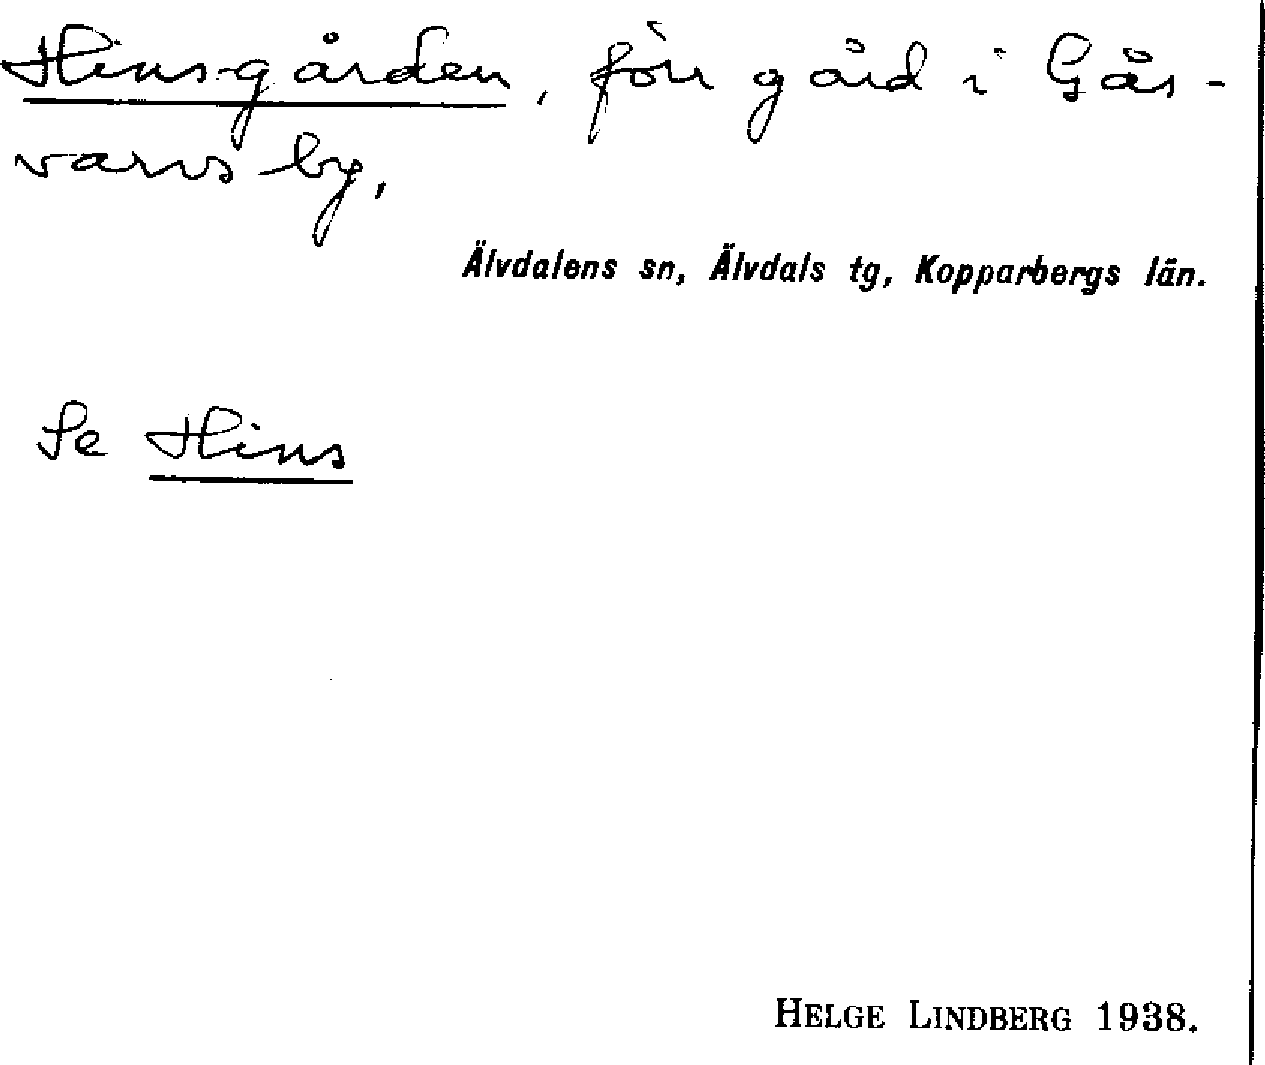 Hinsgården, förr gård i Gås-
varvs by,
Älvdalens sn, Älvdals tg, Kopparbergs län.
Se Hins
HELGE LINDBERG 1938.